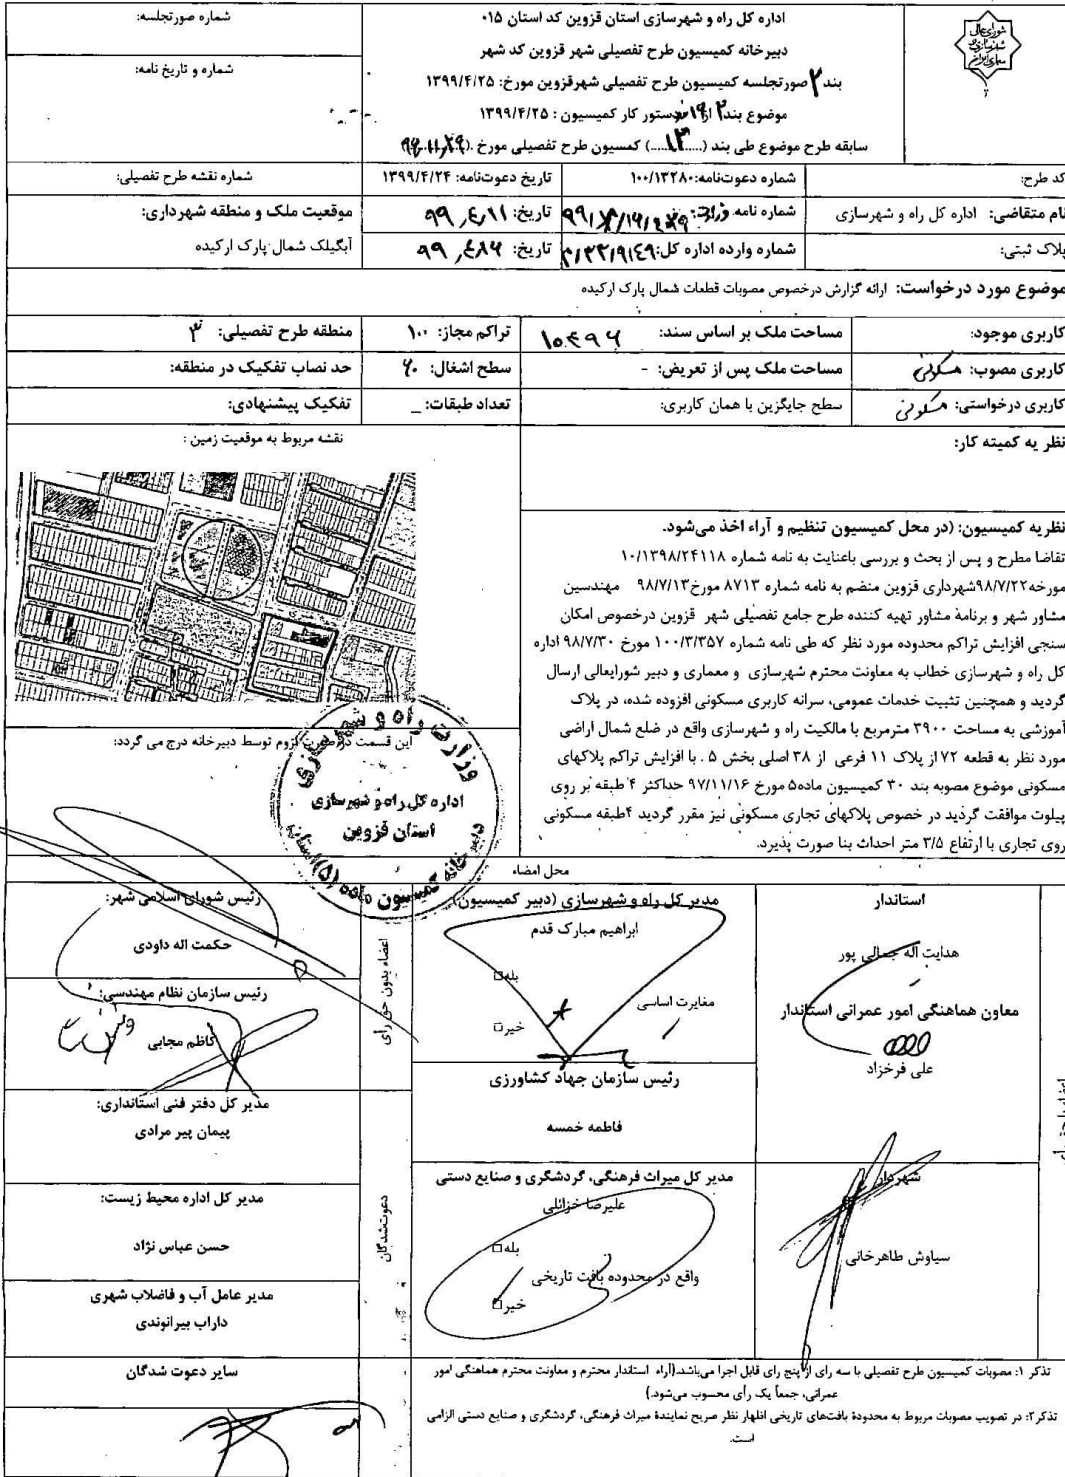 شورای عالی
شهرسازی و
معماری ایران
اداره کل راه و شهرسازی استان قزوین کد استان ۰۱۵
دبیرخانه کمیسیون طرح تفصیلی شهر قزوین کد شهر
بند ۲ صورتجلسه کمیسیون طرح تفصیلی شهرقزوین مورخ: ۱۳۹۹/۴/۲۵
موضوع بند ۲ از ۱۹ دستور کار کمیسیون : ۱۳۹۹/۴/۲۵
سابقه طرح موضوع طی بند (.....۱۳.....) کمسیون طرح تفصیلی مورخ
شماره صورتجلسه:
شماره و تاریخ نامه:
کد طرح:
شماره دعوت‌نامه: ۱۰۰/۱۳۲۸۰
تاریخ دعوت‌نامه: ۱۳۹۹/۴/۲۴
شماره نقشه طرح تفصیلی:
نام متقاضی: اداره کل راه و شهرسازی
شماره نامه
تاریخ: ۹۹,۴,۱۱
موقعیت ملک و منطقه شهرداری:
پلاک ثبتی:
شماره وارده اداره کل:
تاریخ:
آبگیلک شمال پارک ارکیده
موضوع مورد درخواست: ارائه گزارش درخصوص مصوبات قطعات شمال پارک ارکیده
کاربری موجود:
مساحت ملک بر اساس سند: ۱۰۴۹۶
تراکم مجاز: ۱۰۰
منطقه طرح تفصیلی: ۳
کاربری مصوب: مسکونی
مساحت ملک پس از تعریض: -
سطح اشغال: ۶۰
حد نصاب تفکیک در منطقه:
کاربری درخواستی: مسکونی
سطح جایگزین با همان کاربری:
تعداد طبقات: _
تفکیک پیشنهادی:
نظر یه کمیته کار:
نقشه مربوط به موقعیت زمین :
نظریه کمیسیون: (در محل کمیسیون تنظیم و آراء اخذ می‌شود.
تقاضا مطرح و پس از بحث و بررسی باعنایت به نامه شماره ۱۰/۱۳۹۸/۲۴۱۱۸
مورخه۹۸/۷/۲۲شهرداری قزوین منضم به نامه شماره ۸۷۱۳ مورخ۹۸/۷/۱۳ مهندسین
مشاور شهر و برنامه مشاور تهیه کننده طرح جامع تفصیلی شهر قزوین درخصوص امکان
سنجی افزایش تراکم محدوده مورد نظر که طی نامه شماره ۱۰۰/۳/۳۵۷ مورخ ۹۸/۷/۳۰ اداره
کل راه و شهرسازی خطاب به معاونت محترم شهرسازی و معماری و دبیر شورایعالی ارسال
گردید و همچنین تثبیت خدمات عمومی، سرانه کاربری مسکونی افزوده شده، در پلاک
آموزشی به مساحت ۳۹۰۰ مترمربع با مالکیت راه و شهرسازی واقع در ضلع شمال اراضی
مورد نظر به قطعه ۷۲ از پلاک ۱۱ فرعی از ۳۸ اصلی بخش ۵ . با افزایش تراکم پلاکهای
مسکونی موضوع مصوبه بند ۳۰ کمیسیون ماده۵ مورخ ۹۷/۱۱/۱۶ حداکثر ۴ طبقه بر روی
پیلوت موافقت گردید در خصوص پلاکهای تجاری مسکونی نیز مقرر گردید ۴طبقه مسکونی
روی تجاری با ارتفاع ۳/۵ متر احداث بنا صورت پذیرد.
این قسمت در صورت لزوم توسط دبیرخانه درج می گردد:
وزارت راه و شهرسازی
اداره کل راه و شهرسازی
استان قزوین
دبیرخانه کمیسیون ماده (۵) استان
محل امضاء
اعضاء با حق رأی
استاندار
هدایت اله جمالی پور
معاون هماهنگی امور عمرانی استاندار
علی فرخزاد
مدیر کل راه و شهرسازی (دبیر کمیسیون)
ابراهیم مبارک قدم
بله□
مغایرت اساسی
خیر□
اعضاء بدون حق رأی
رئیس شورای اسلامی شهر:
حکمت اله داودی
رئیس سازمان نظام مهندسی:
کاظم مجابی
رئیس سازمان جهاد کشاورزی
فاطمه خمسه
دعوت‌شدگان
مدیر کل دفتر فنی استانداری:
پیمان پیر مرادی
شهردار
سیاوش طاهرخانی
مدیر کل میراث فرهنگی، گردشگری و صنایع دستی
علیرضا خزائلی
بله□
واقع در محدوده بافت تاریخی
خیر□
مدیر کل اداره محیط زیست:
حسن عباس نژاد
مدیر عامل آب و فاضلاب شهری
داراب بیرانوندی
سایر دعوت شدگان
تذکر ۱: مصوبات کمیسیون طرح تفصیلی با سه رای از پنج رای قابل اجرا می‌باشد.(آراء استاندار محترم و معاونت محترم هماهنگی امور
عمرانی، جمعاً یک رأی محسوب می‌شود.)
تذکر۲: در تصویب مصوبات مربوط به محدودۀ بافت‌های تاریخی اظهار نظر صریح نمایندۀ میراث فرهنگی، گردشگری و صنایع دستی الزامی
است.